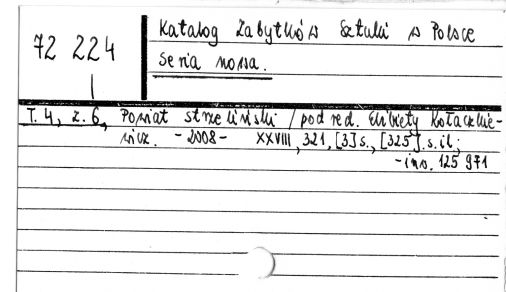 72 224
Katalog Zabytków Sztuki w Polsce
Seria nowa.
T. 4, z. 6, Powiat strzeliński / pod red. Elżbiety Kołaczkie-
wicz. - 2008 - XXVIII, 321, [3] s., [325] s. il;
- inw. 125 971